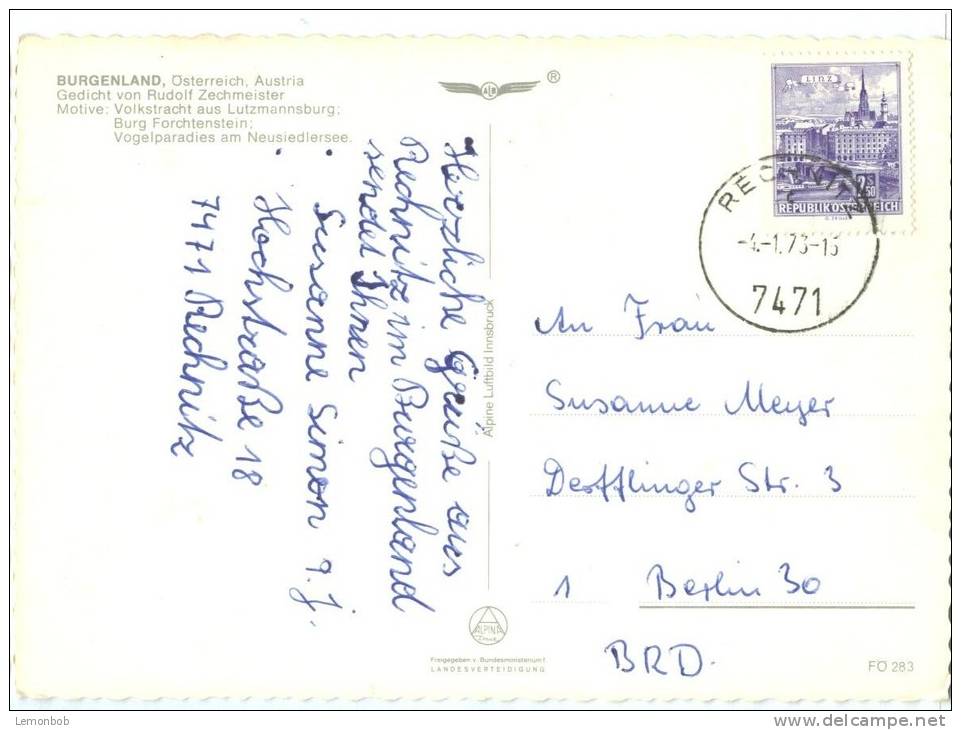 BURGENLAND, Österreich, Austria
Gedicht von Rudolf Zechmeister
Motive: Volkstracht aus Lutzmannsburg;
Burg Forchtenstein;
Vogelparadies am Neusiedlersee.
ALB
®
LINZ
2S
50
REPUBLIK ÖSTERREICH
RECHNITZ
-4.-1.73-15
7471
Herzliche Grüße aus
Rechnitz im Burgenland
sendet Ihnen
Susanne Simon 9. J.
Hochstraße 18
7471 Rechnitz
Alpine Luftbild Innsbruck
An Frau
Susanne Meyer
Derfflinger Str. 3
1 Berlin 30
BRD.
ALPINA
Druck
Freigegeben v. Bundesministerium f.
LANDESVERTEIDIGUNG
FÖ 283
Lemonbob
www.delcampe.net